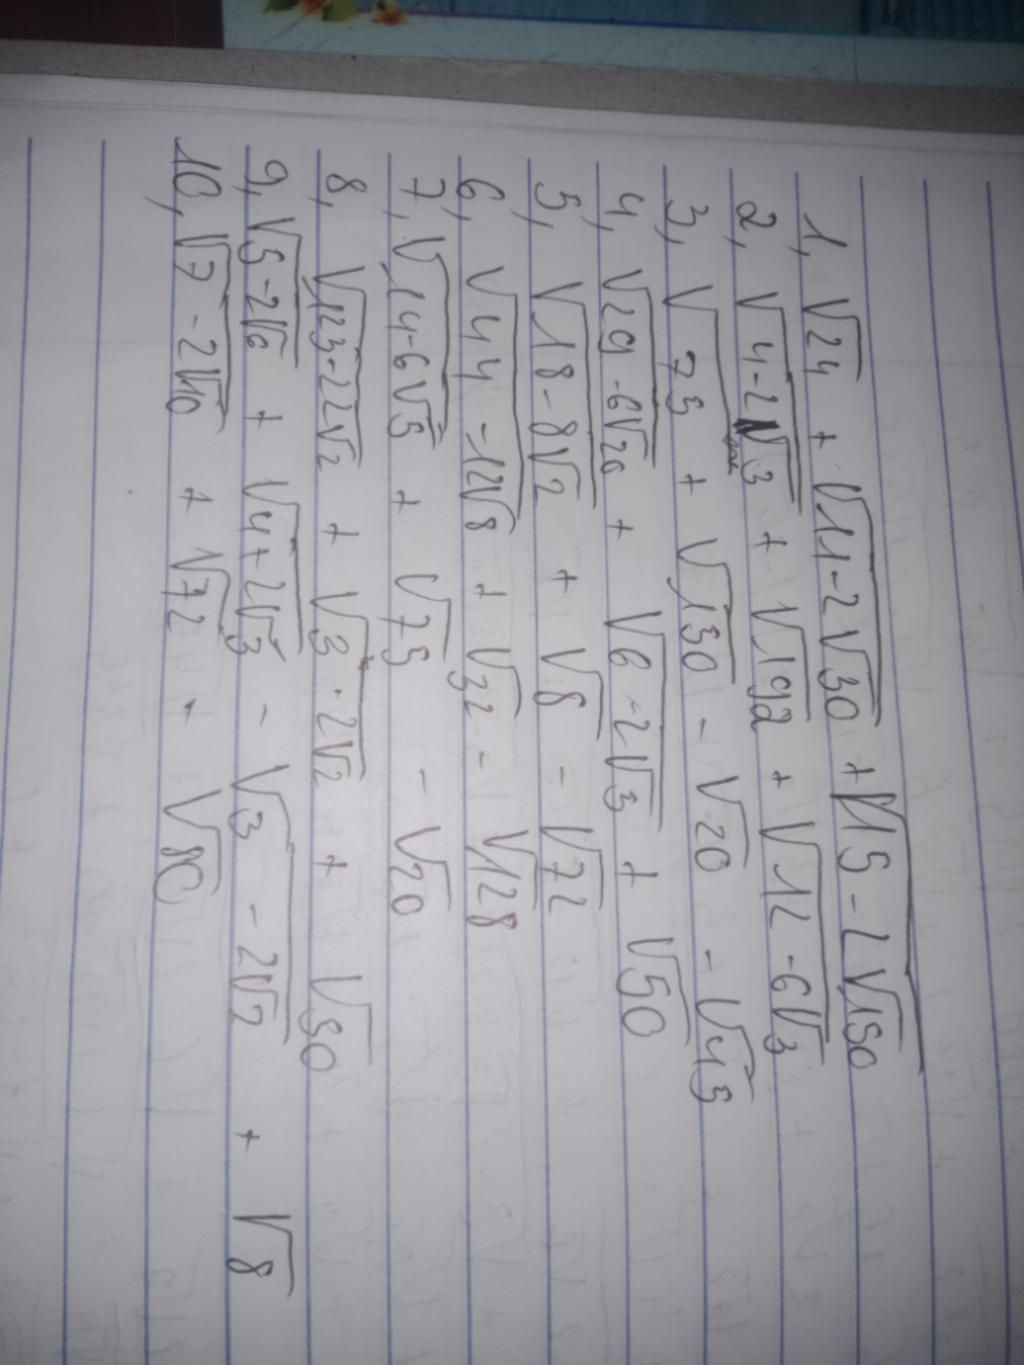 1, √24 + √11-2√30 + √15-2√150
2, √4-2√3 + √192 + √12-6√3
3, √75 + √150 - √20 - √45
4, √29-6√20 + √6-2√3 + √50
5, √18-8√2 + √8 - √72
6, √44-12√8 + √32 - √128
7, √14-6√5 + √75 - √20
8, √123-22√2 + √3-2√2 + √50
9, √5-2√6 + √4+2√3 - √3-2√2 + √8
10, √7-2√10 + √72 + √80